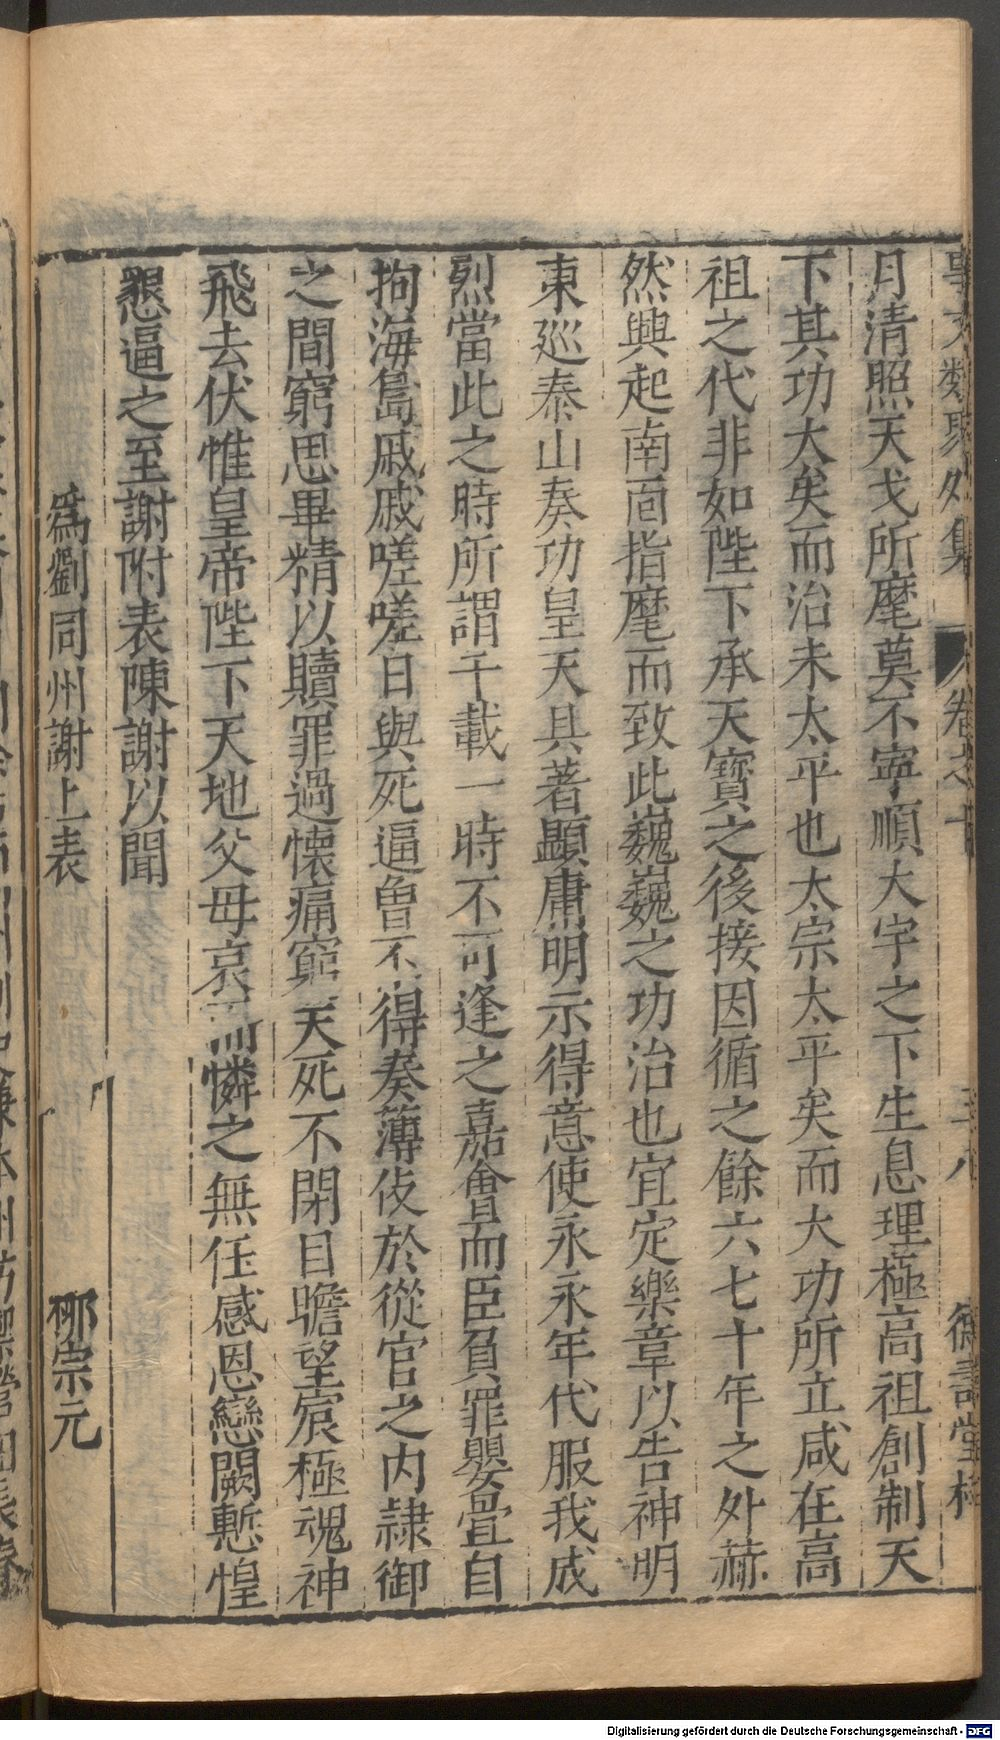 卷之十
三八
月清照天戈所麾莫不寧順大宇之下生息理極高祖創制天
下其功大矣而治未太平也太宗太平矣而大功所立咸在高
祖之代非如陛下承天寶之後接因循之餘六七十年之外赫
然興起南面指麾而致此巍巍之功治也宜定樂章以告神明
東巡泰山奏功皇天具著顯庸明示得意使永永年代服我成
烈當此之時所謂千載一時不可逢之嘉會而臣負罪嬰舋自
拘海島戚戚嗟嗟日與死逼曾不得奏薄伎於從官之內隷御
之間窮思畢精以贖罪過懷痛窮天死不閉目瞻望宸極魂神
飛去伏惟皇帝陛下天地父母哀而憐之無任感恩戀闕慙惶
懇逼之至謝附表陳謝以聞
爲劉同州謝上表
柳宗元
Digitalisierung gefördert durch die Deutsche Forschungsgemeinschaft - DFG